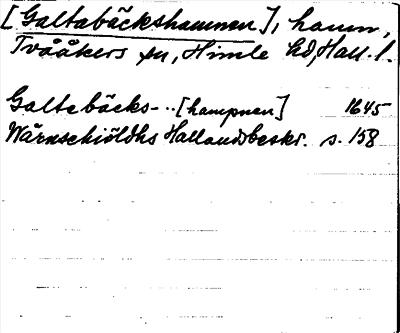 [Galtabäckshamnen], hamn,
Tvååkers sn, Himle hd, Hall. l.
Galtabäcks-..[hampnen] 1645
Wärnschiöldhs Hallandsbeskr. s. 158